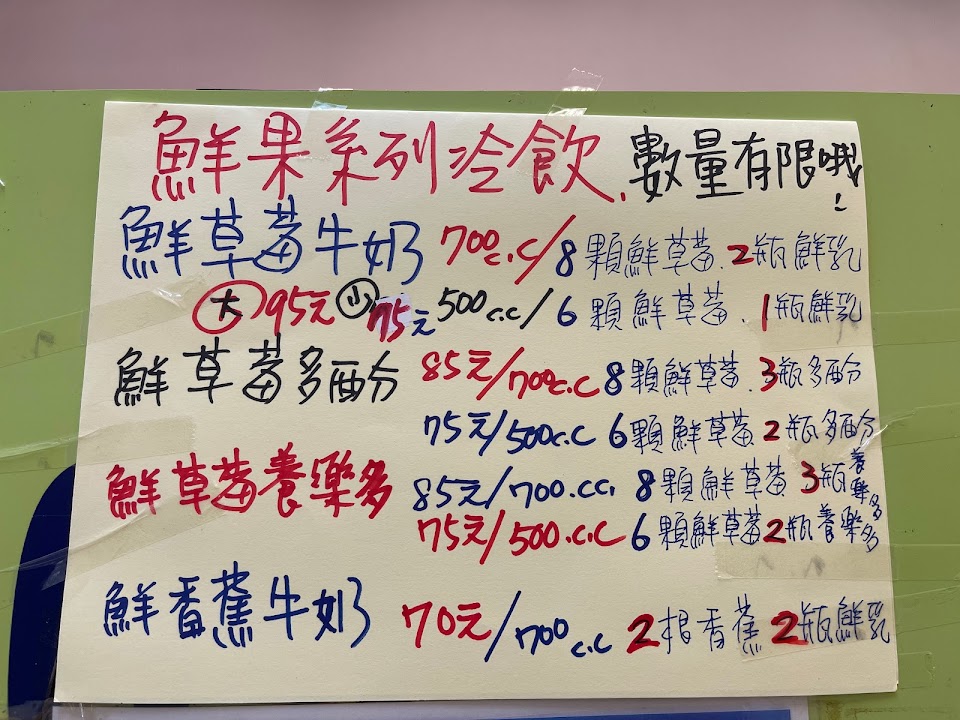 鮮果系列冷飲. 數量有限哦!
鮮草莓牛奶 700c.c/8顆鮮草莓.2瓶鮮乳
大95元 小75元 500c.c/6顆鮮草莓.1瓶鮮乳
鮮草莓多酉分 85元/700c.c 8顆鮮草莓.3瓶多酉分
75元/500c.c 6顆鮮草莓2瓶多酉分
鮮草莓養樂多 85元/700.cc. 8顆鮮草莓3瓶養樂多
75元/500.c.c 6顆鮮草莓2瓶養樂多
鮮香蕉牛奶 70元/700c.c 2根香蕉2瓶鮮乳